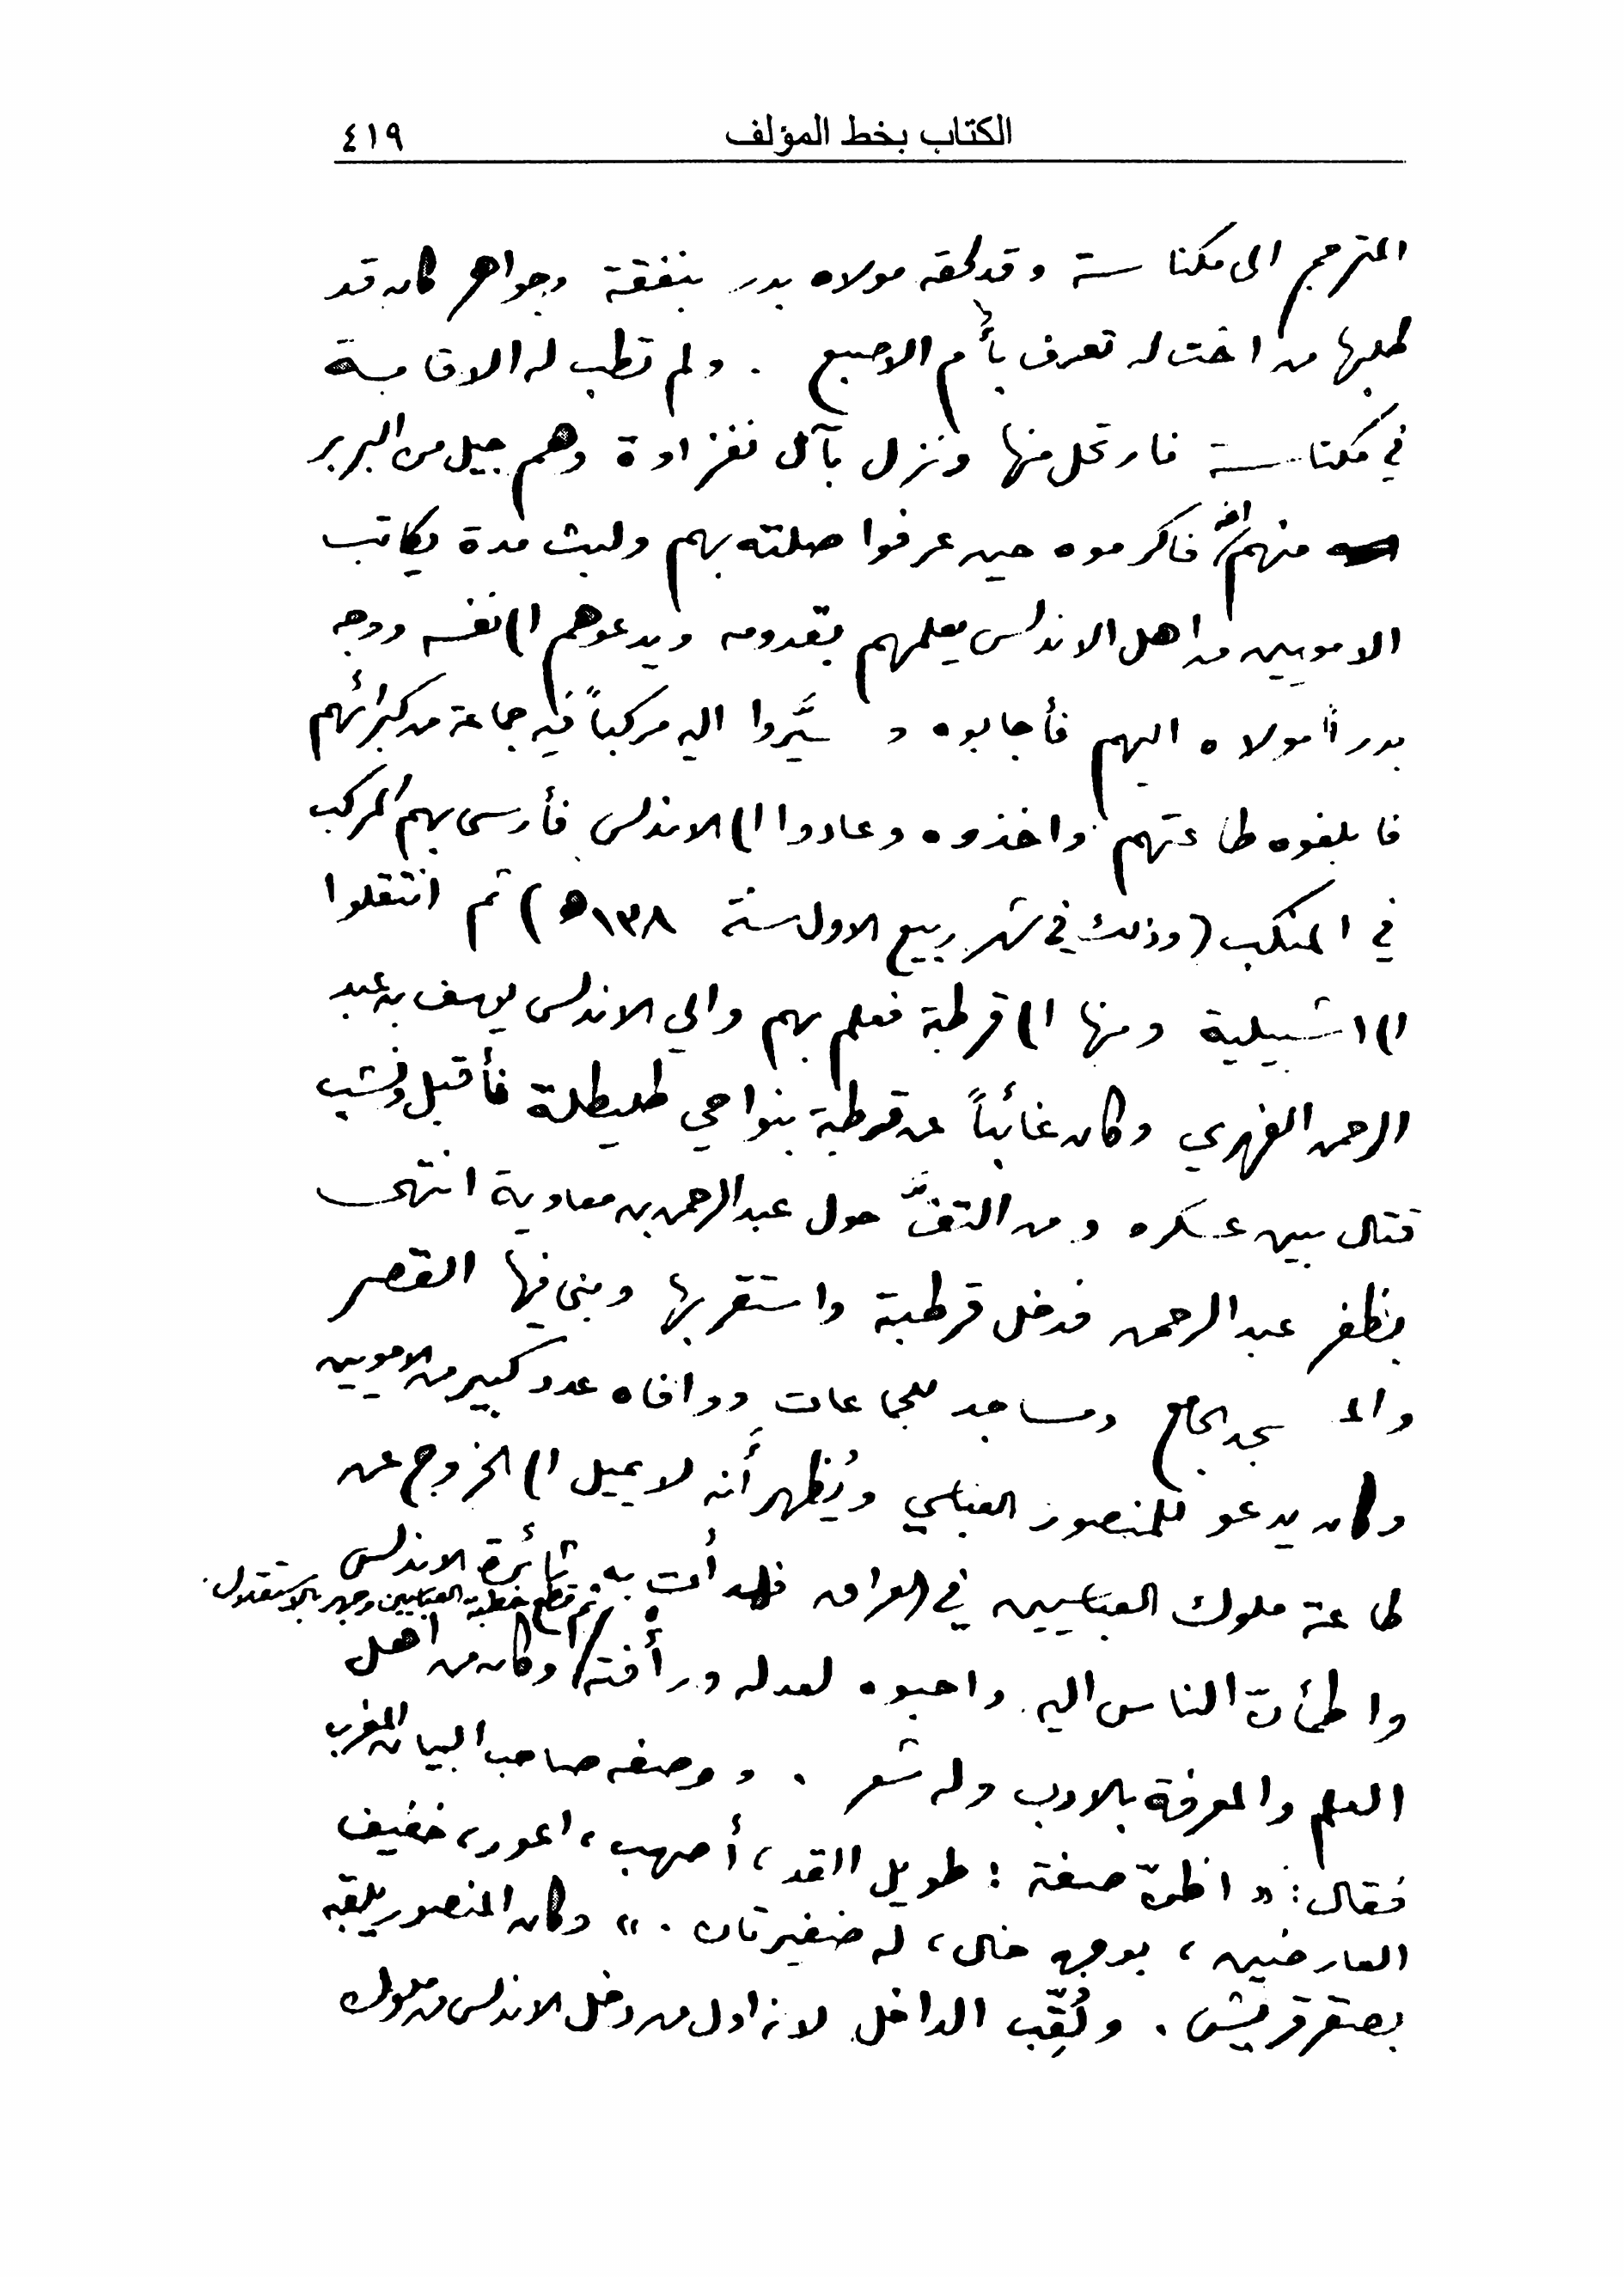 الكتاب بخط المؤلف ٤١٩
المترجم الى مكناسة وقد لحقه مولاه بدر بنفقة وجواهر كان قد
طلبها من اخت له تعرف بأم الاصبع . ولم تطب له الاقامة
في مكناسة فارتحل منها ونزل بآل نفزاوة وهم جيل من البربر
امه منهم فاكرموه حين عرفوا صلته بهم ولبث مدة يكاتب
الامويين من اهل الاندلس يعلمهم بقدومه ويدعوهم الى نفسه ووجه
بدراً مولاه اليهم فأجابوه و سيَّروا اليه مركباً فيه جماعة من كبرائهم
فابلغوه طاعتهم واخذوه وعادوا الى الاندلس فأرسى بهم المركب
في المنكب (وذلك في شهر ربيع الاول سنة ١٣٨هـ) ثم انتقلوا
الى اشبيلية ومنها الى قرطبة فعلم بهم والي الاندلس يوسف بن عبد
الرحمن الفهري وكان غائباً عن قرطبة بنواحي طليطلة فأقبل ونشب
قتال بين عسكره ومن التفَّ حول عبد الرحمن بن معاوية انتهى
بظفر عبد الرحمن فدخل قرطبة واستقر بها وبنى فيها القصر
والمسجد الجامع ومساجد للجماعات ووافاه عدد كبير من الامويين
وكان يدعو للمنصور العباسي ويُظهر أنه لا يميل الى الخروج عن
طاعة ملوك العباسيين في العراق فهدأت به ثائرة الاندلس
ثم قطع خطبة العباسيين وجهر بالاستقلال.
واطمأنّ الناس اليه واحبوه لعدله ورأفته وكان من اهل
العلم والمعرفة بالادب وله شعر . ووصفه صاحب البيان المغرب
فقال: «
صفة : طويل القد، أصهب، اعور، خفيف
العارضين، بوجهه خال، له ضفيرتان .» وكان المنصور يلقبه
بصقر قريش . ولُقِّب الداخل لانه اول من دخل الاندلس من ملوك